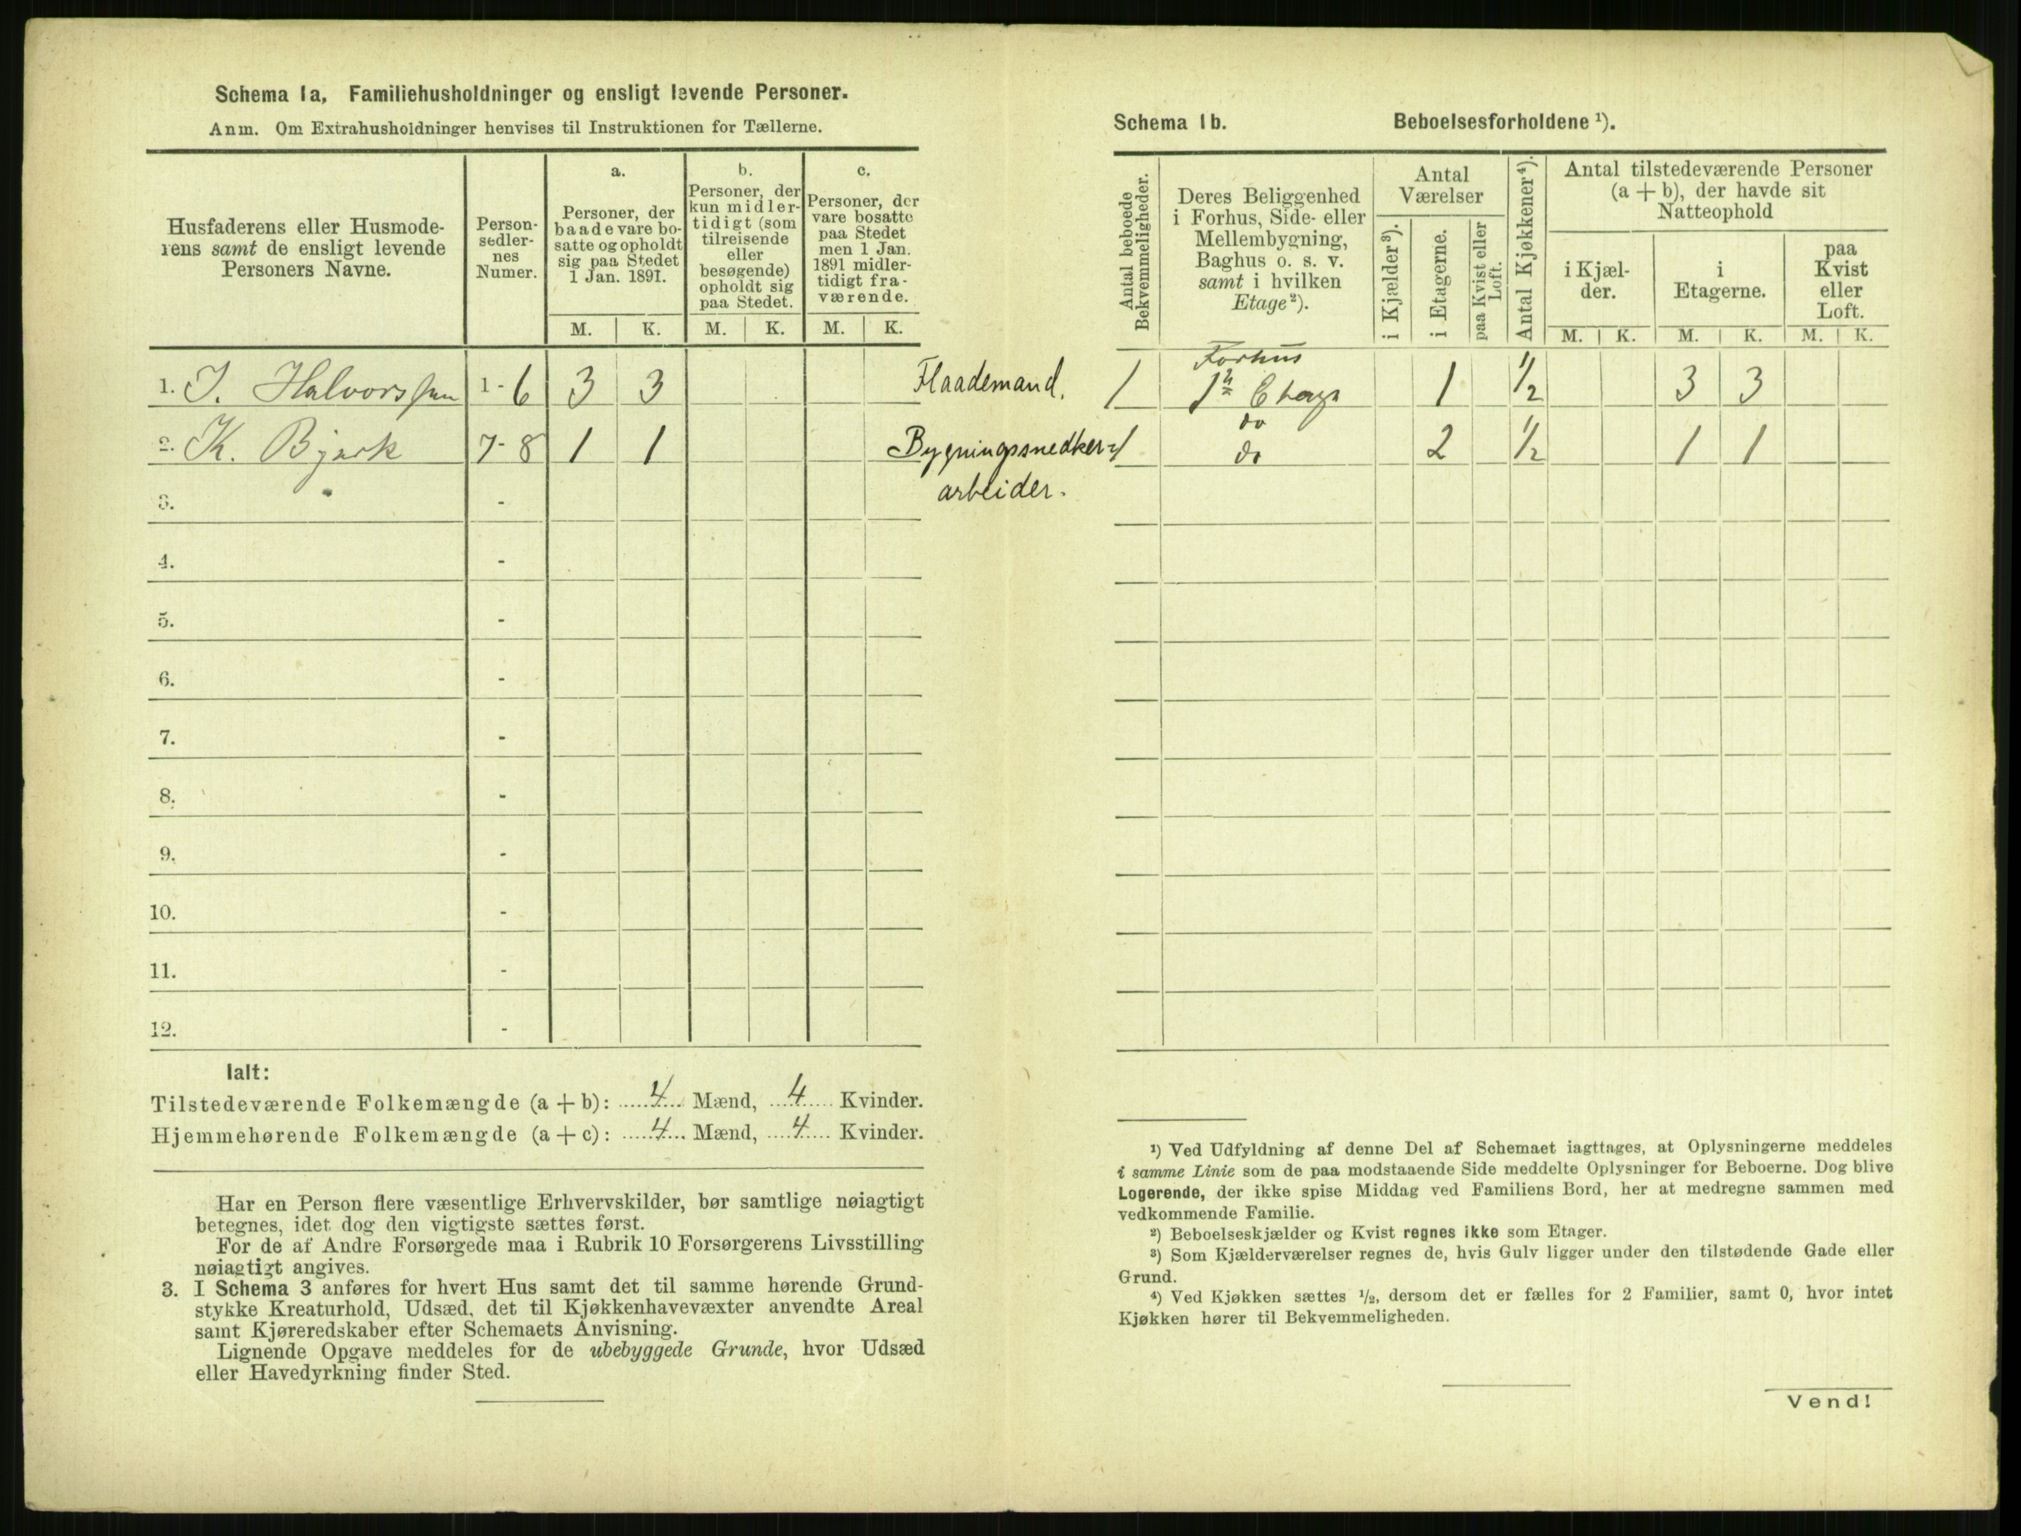 Schema 1a, Familiehusholdninger og ensligt levende Personer.
Anm. Om Extrahusholdninger henvises til Instruktionen for Tællerne.
Husfaderens eller Husmode-
rens samt de ensligt levende
Personers Navne.
Person-
sedler-
nes
Numer.
a.
Personer, der
baade vare bo-
satte og opholdt
sig paa Stedet
1 Jan. 1891.
b.
Personer, der
kun midler-
tidigt (som
tilreisende
eller
besøgende)
opholdt sig
paa Stedet.
c.
Personer, der
vare bosatte
paa Stedet
men 1 Jan.
1891 midler-
tidigt fra-
værende.
M. K. M. K. M. K.
1. I. Halvorssen 1 - 6 3 3 Flaademand.
2. K. Bjerk 7 - 8 1 1 Bygningssnedker=
arbeider.
3. -
4. -
5. -
6. -
7. -
8. -
9. -
10. -
11. -
12. -
Ialt:
Tilstedeværende Folkemængde (a + b): 4 Mænd, 4 Kvinder.
Hjemmehørende Folkemængde (a + c): 4 Mænd, 4 Kvinder.
Har en Person flere væsentlige Erhvervskilder, bør samtlige nøiagtigt
betegnes, idet dog den vigtigste sættes først.
For de af Andre Forsørgede maa i Rubrik 10 Forsørgerens Livsstilling
nøiagtigt angives.
3. I Schema 3 anføres for hvert Hus samt det til samme hørende Grund-
stykke Kreaturhold, Udsæd, det til Kjøkkenhavevæxter anvendte Areal
samt Kjøreredskaber efter Schemaets Anvisning.
Lignende Opgave meddeles for de ubebyggede Grunde, hvor Udsæd
eller Havedyrkning finder Sted.
Schema 1b. Beboelsesforholdene ¹).
Antal beboede
Bekvemmeligheder.
Deres Beliggenhed
i Forhus, Side- eller
Mellembygning,
Baghus o. s. v.
samt i hvilken
Etage²).
Antal
Værelser
i Kjælder³).
i Etagerne.
paa Kvist eller
Loft.
Antal Kjøkkener⁴).
Antal tilstedeværende Personer
(a + b), der havde sit
Natteophold
i Kjæl-
der.
i
Etagerne.
paa
Kvist
eller
Loft.
M. K. M. K. M. K.
Forhus
1 1ste Etage 1 ½ 3 3
do
1 do 2 ½ 1 1
¹) Ved Udfyldning af denne Del af Schemaet iagttages, at Oplysningerne meddeles
i samme Linie som de paa modstaaende Side meddelte Oplysninger for Beboerne. Dog blive
Logerende, der ikke spise Middag ved Familiens Bord, her at medregne sammen med
vedkommende Familie.
²) Beboelseskjælder og Kvist regnes ikke som Etager.
³) Som Kjælderværelser regnes de, hvis Gulv ligger under den tilstødende Gade eller
Grund.
⁴) Ved Kjøkken sættes ½, dersom det er fælles for 2 Familier, samt 0, hvor intet
Kjøkken hører til Bekvemmeligheden.
Vend!